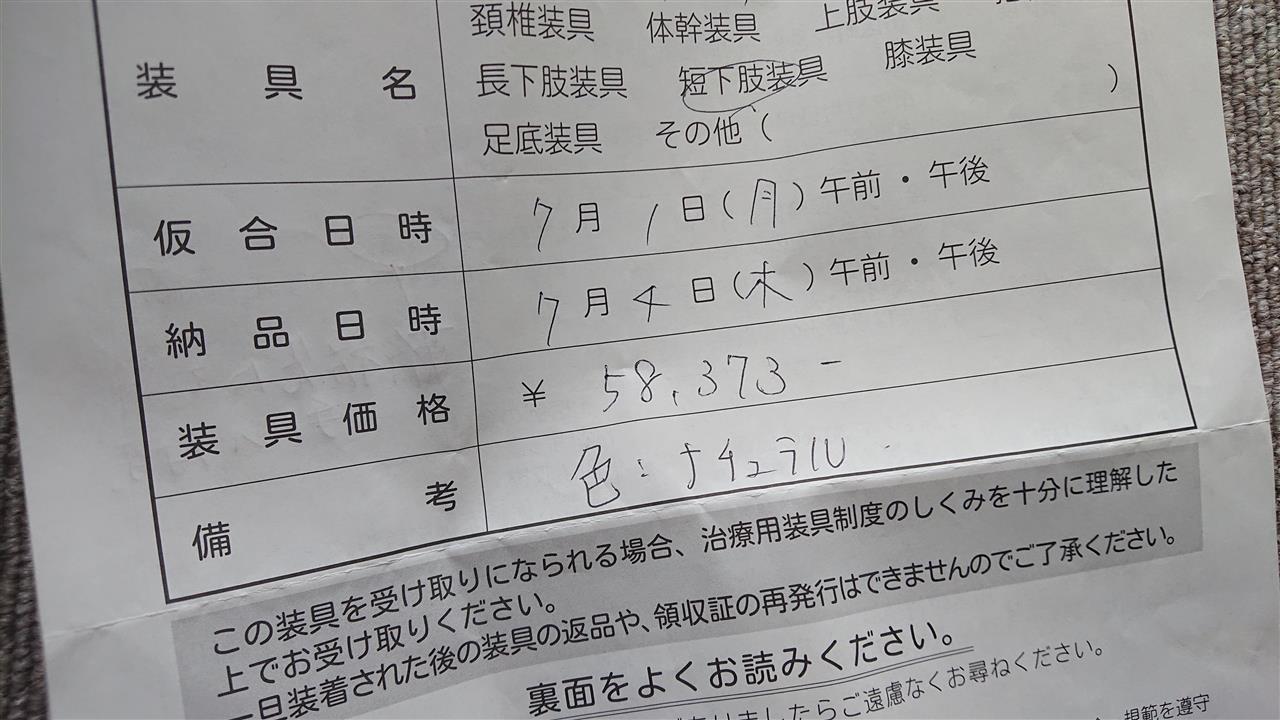 頚椎装具 体幹装具 上肢装具
装具名 長下肢装具 短下肢装具 膝装具
足底装具 その他( )
仮合日時 7月1日(月)午前・午後
納品日時 7月4日(木)午前・午後
装具価格 ¥ 58,373-
備考 色:ナチュラル
この装具を受け取りになられる場合、治療用装具制度のしくみを十分に理解した
上でお受け取りください。
一旦装着された後の装具の返品や、領収証の再発行はできませんのでご了承ください。
裏面をよくお読みください。
ましたらご遠慮なくお尋ねください。
規範を遵守